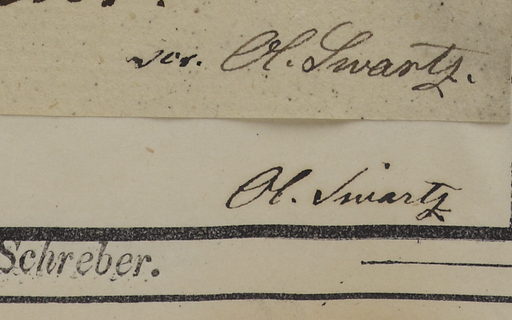 scr. Ol. Swartz.
Ol. Swartz
Schreber.